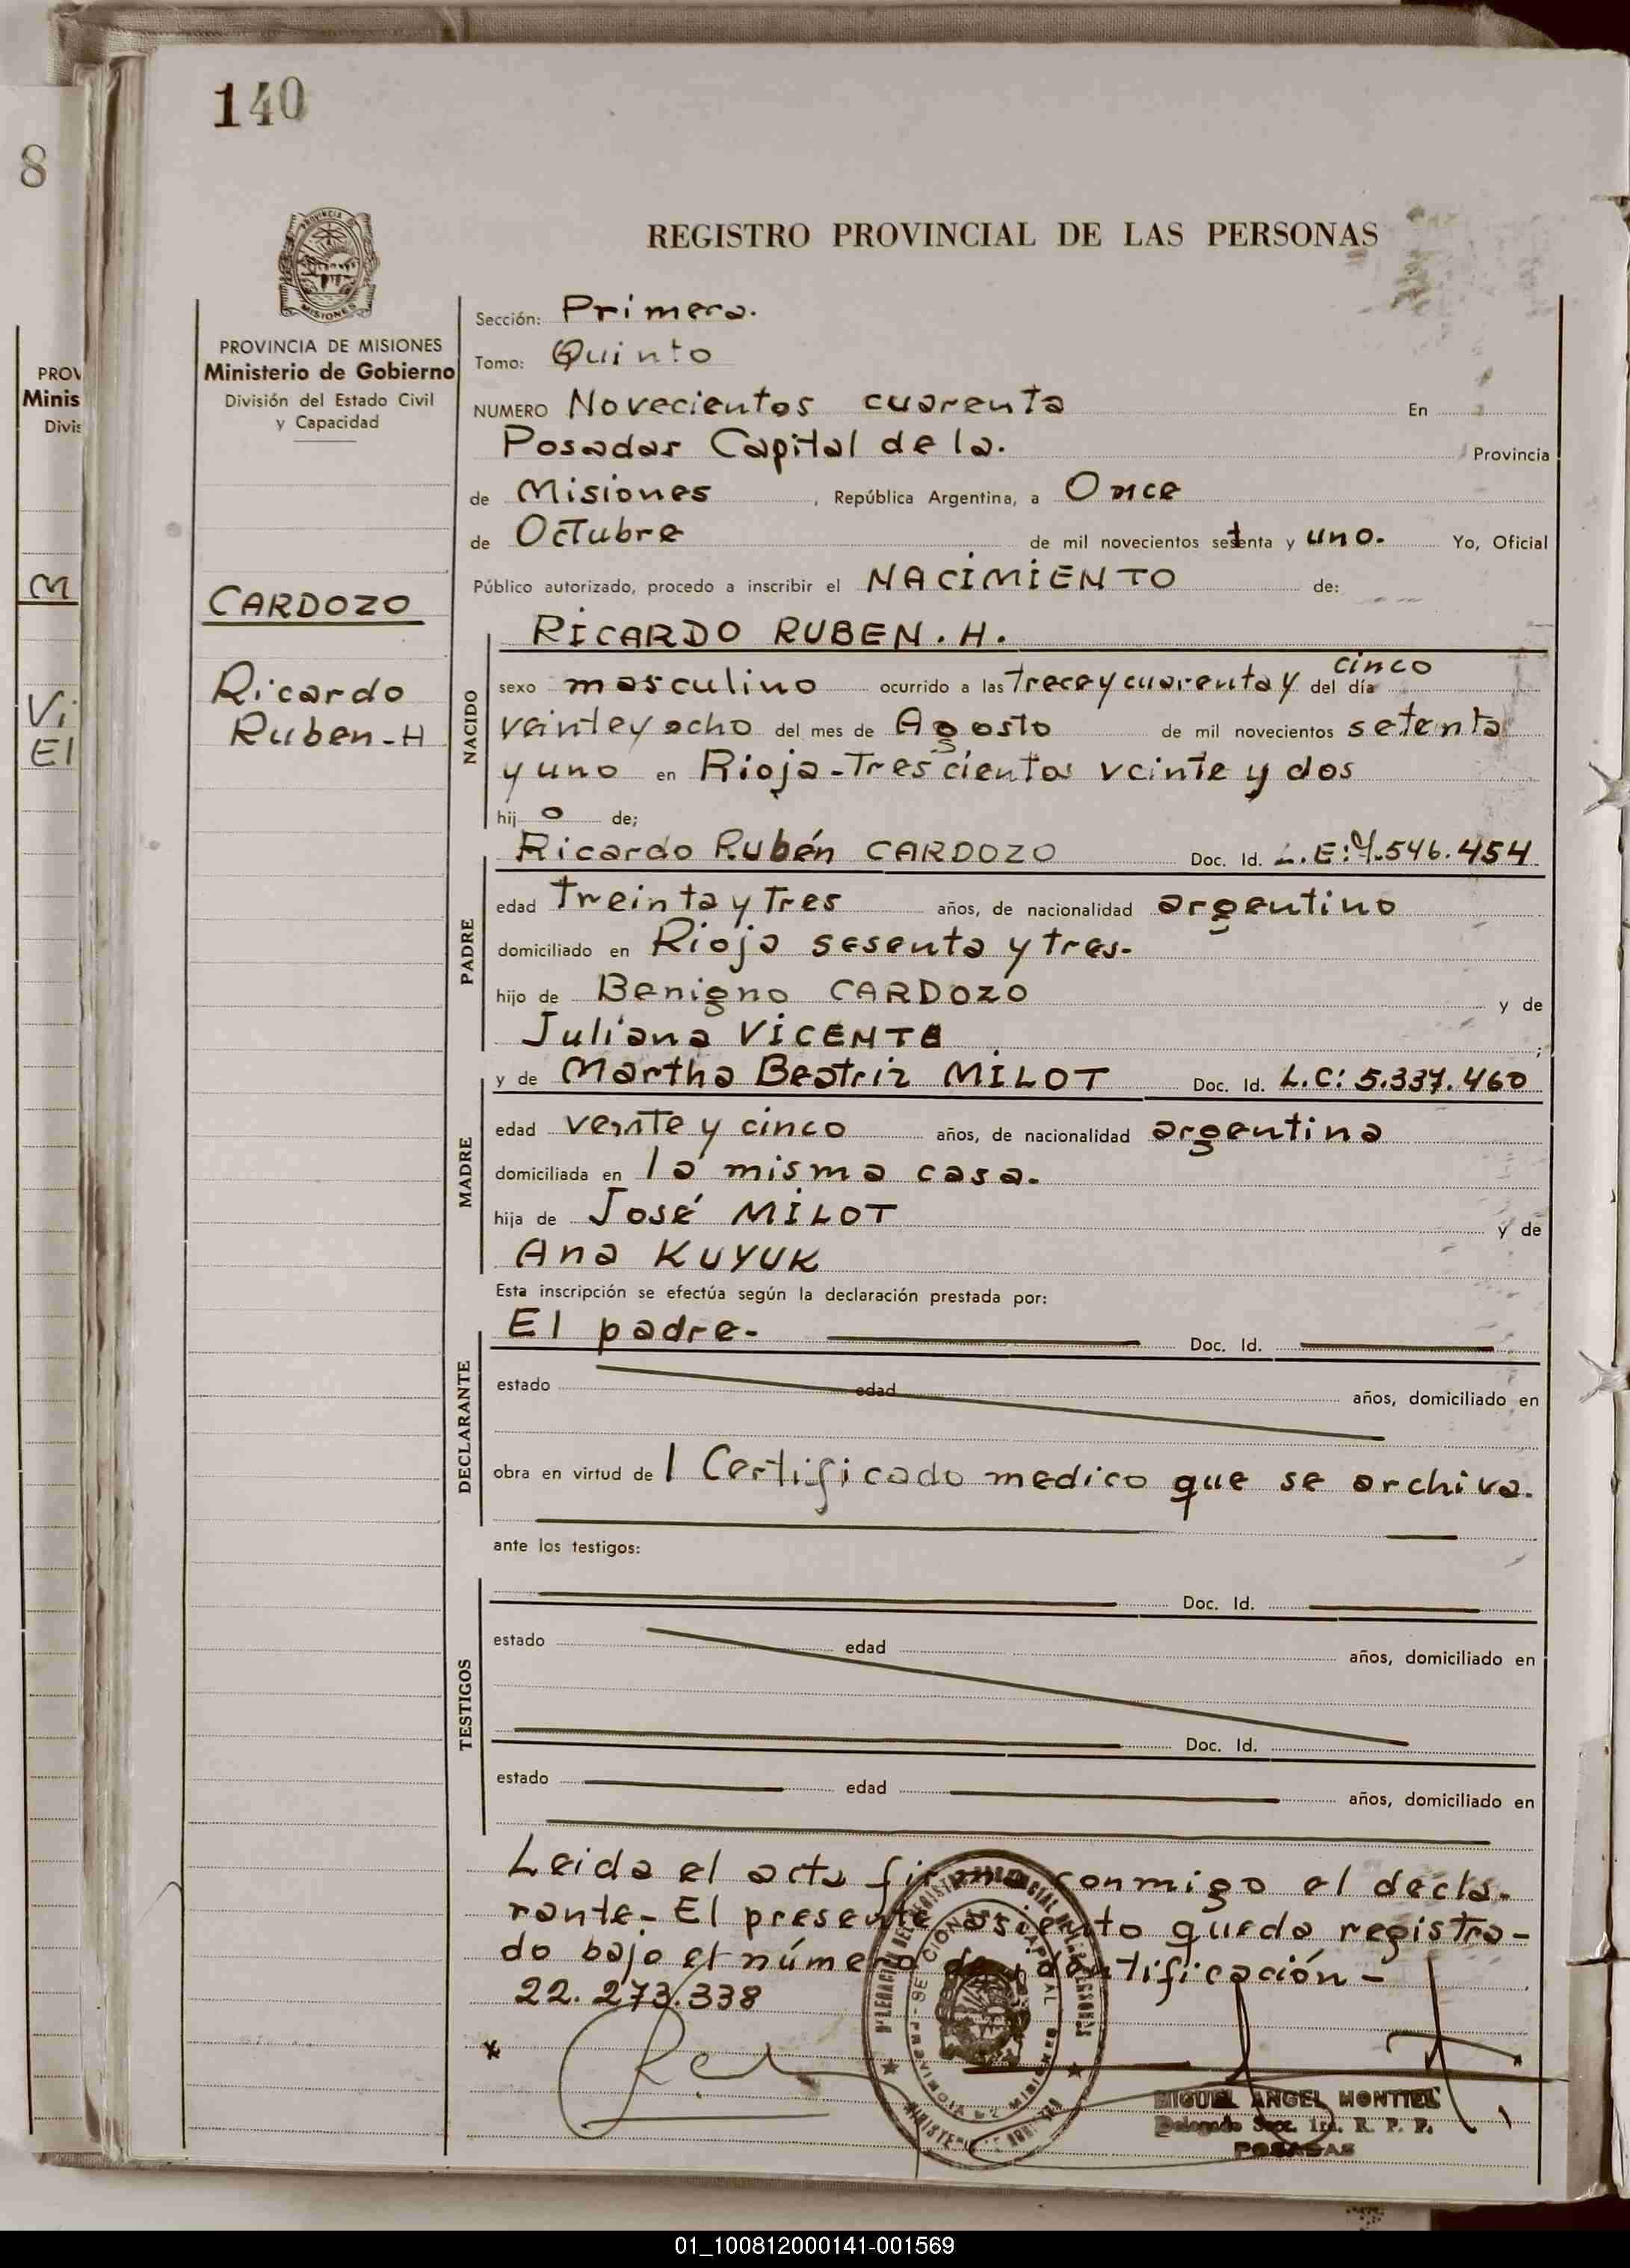 140
8
PROVINCIA DE
MISIONES
REGISTRO PROVINCIAL DE LAS PERSONAS
PROVINCIA DE MISIONES
Ministerio de Gobierno
División del Estado Civil
y Capacidad
PROV
Minis
Divis
M
Vi
El
CARDOZO
Ricardo
Ruben-H
Sección: Primera.
Tomo: Quinto
NUMERO Novecientos cuarenta En
Posadas Capital de la. Provincia
de Misiones , República Argentina, a Once
de Octubre de mil novecientos setenta y uno. Yo, Oficial
Público autorizado, procedo a inscribir el NACIMIENTO de:
NACIDO
RICARDO RUBEN. H.
sexo masculino ocurrido a las trece y cuarenta y cinco del día
veinte y ocho del mes de Agosto de mil novecientos setenta
y uno en Rioja-Trescientos veinte y dos
hij o de;
PADRE
Ricardo Rubén CARDOZO Doc. Id. L.E: 7.546.454
edad Treinta y Tres años, de nacionalidad argentino
domiciliado en Rioja sesenta y tres-
hijo de Benigno CARDOZO y de
Juliana VICENTE ;
MADRE
y de Martha Beatriz MILOT Doc. Id. L.C: 5.337.460
edad veinte y cinco años, de nacionalidad argentina
domiciliada en la misma casa.
hija de José MILOT y de
Ana KUYUK
Esta inscripción se efectúa según la declaración prestada por:
DECLARANTE
El padre- Doc. Id.
estado edad años, domiciliado en
obra en virtud de l Certificado medico que se archiva.
ante los testigos:
TESTIGOS
Doc. Id.
estado edad años, domiciliado en
Doc. Id.
estado edad años, domiciliado en
Leida el acta firma conmigo el decla-
rante- El presente asiento queda registra-
do bajo el número de identificación-
22.273.338
x
MIGUEL ANGEL MONTIEL
Delegado Secc. 1ra. R. P. P.
POSADAS
01_100812000141-001569